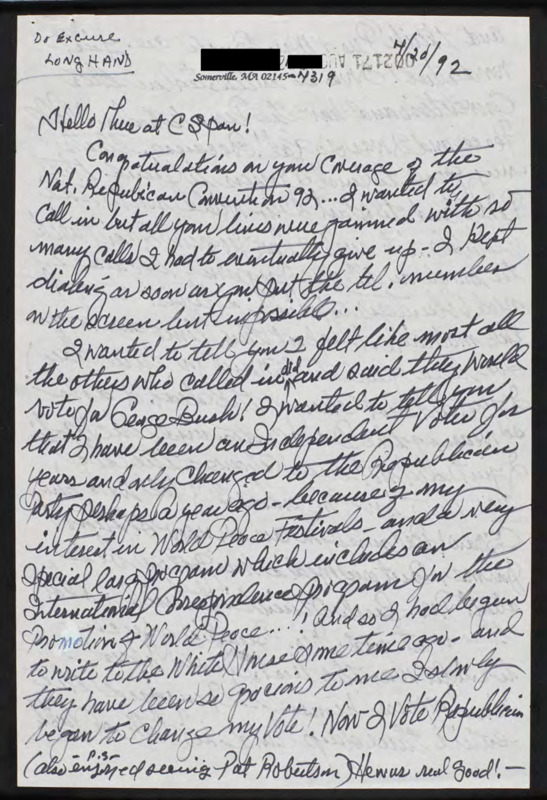 Do Excuse
LONG HAND
002171 AUG
8/20/92
Somerville, MA 02145-4319
Hello There at C Span!
Congratulations on your Coverage of the
Nat. Republican Convention 92... I wanted to
Call in but all your lines were jammed with so
many calls I had to eventually give up - I kept
dialing as soon as you put the tel. number
on the screen but impossible...
I wanted to tell you I felt like most all
the others who called in did and said they would
vote for George Bush! I wanted to tell you
that I have been an Independent Voter for
years and only Changed to the Republican
Party perhaps a year ago - because of my
interest in World Peace Festivals - and a very
Special large Program which includes an
International Correspondence Program for the
Promotion of World Peace... And so I had begun
to write to the White House some time ago - and
they have been so gracious to me I slowly
began to Change my Vote! Now I Vote Republican
P.S.
(also enjoyed seeing Pat Robertson) He was real good! -